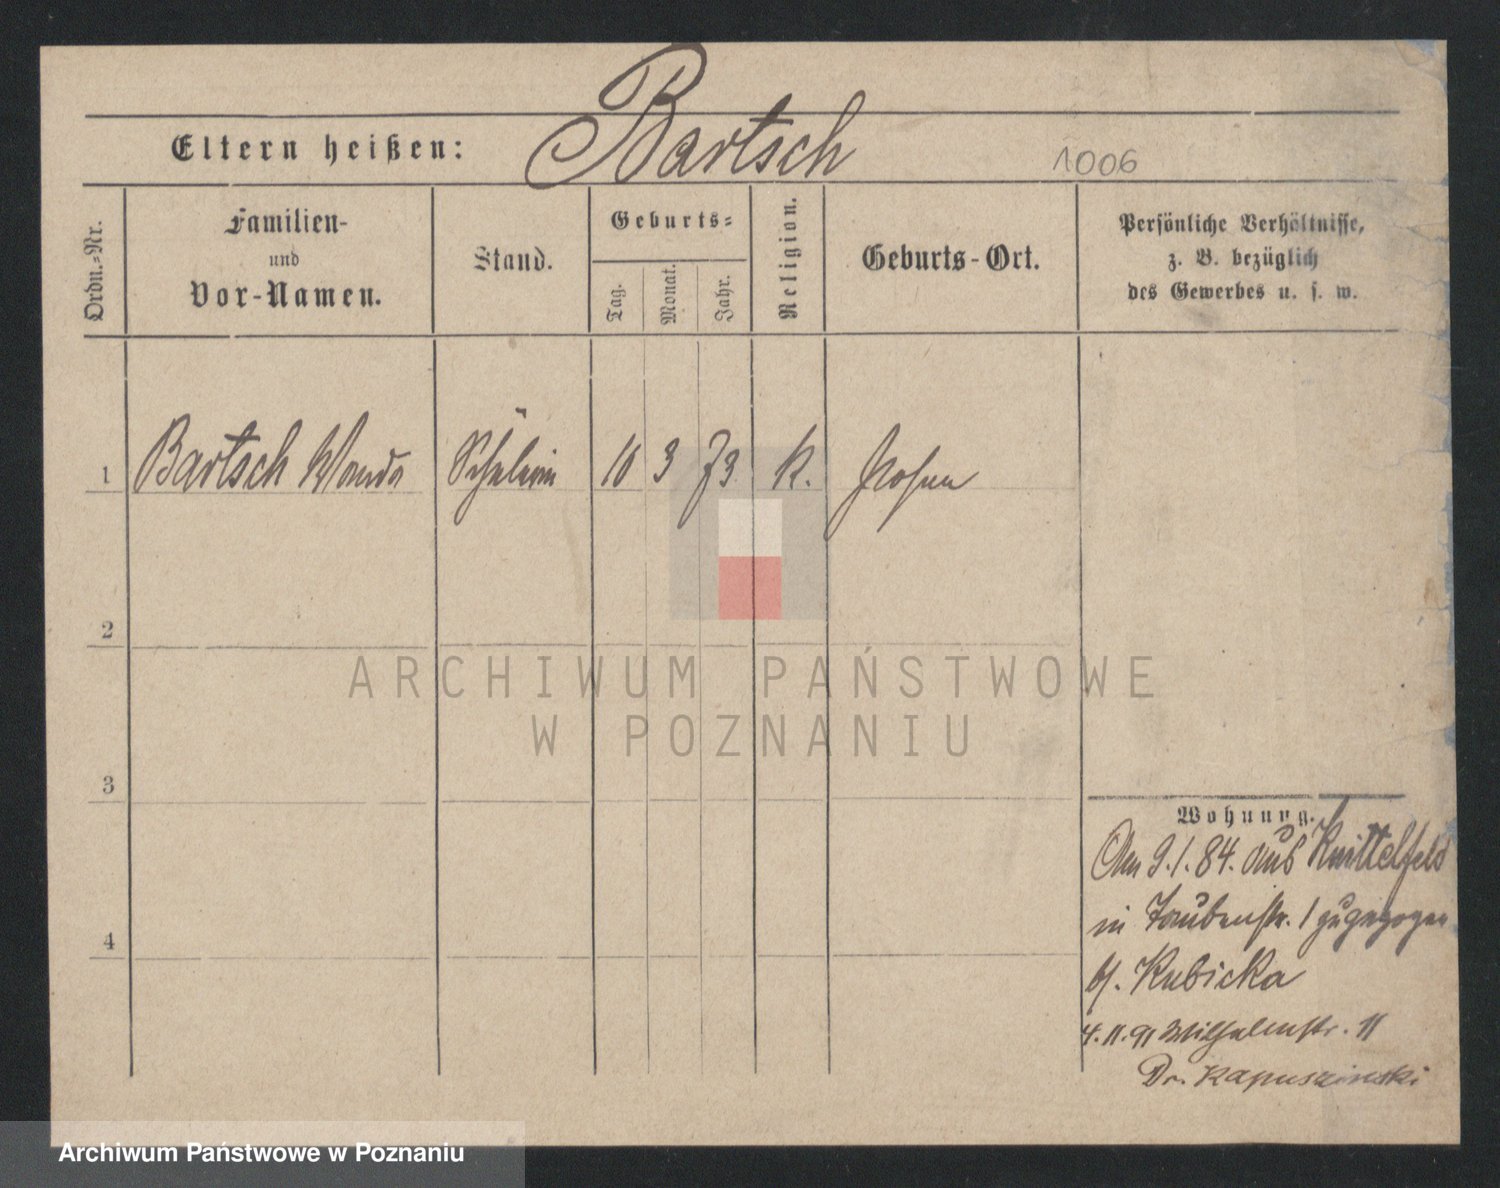 Bartsch
Eltern heißen:
1006
Ordn.-Nr.
Familien-
und
Vor-Namen.
Stand.
Geburts-
Tag.
Monat.
Jahr.
Religion.
Geburts-Ort.
Persönliche Verhältnisse,
z. B. bezüglich
des Gewerbes u. s. w.
1 Bartsch Wanda Schülerin 10 3 73 K. Posen
2
ARCHIWUM PAŃSTWOWE
W POZNANIU
3
Wohnung.
Am 9.1.84. aus Knittelfeld
in Taubenstr. 1 zugezogen
4
b/. Kubicka
4.11.91 Wilhelmstr. 11
Dr. Kapuszinski
Archiwum Państwowe w Poznaniu